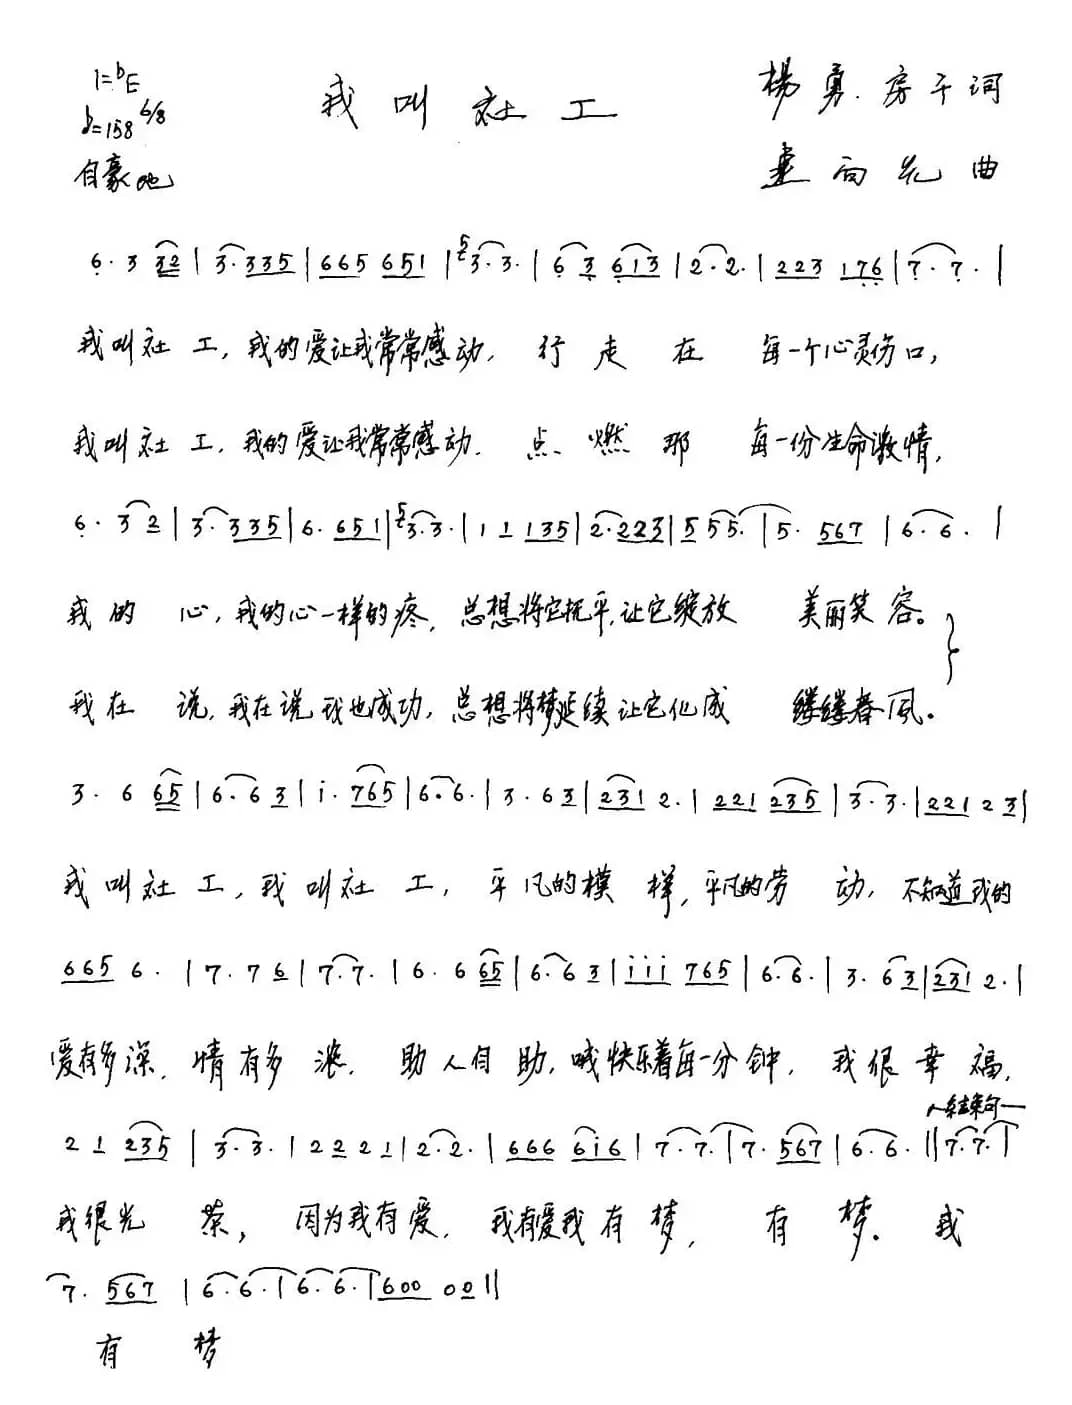 1=ᵇE
我叫社工
楊勇.房千词
♪=158 6/8
自豪地
向光曲
6. 3 32 | 3. 335 | 665 651 | 3. 3. | 6 3 613 | 2. 2. | 223 176 | 7. 7. |
我叫社工,我的爱让我常常感动,行走在每一个心灵伤口,
我叫社工,我的爱让我常常感动.点燃那每一份生命激情,
6. 3 2 | 3. 335 | 6. 651 | 3. 3. | 1 1 135 | 2. 223 | 5 5 5. | 5. 567 | 6. 6. |
我的心,我的心一样的疼,总想将它抚平,让它绽放美丽笑容。
我在说,我在说我也成功,总想将梦延续让它化成缕缕春風。
3. 6 65 | 6. 6 3 | i. 765 | 6. 6. | 3. 6 3 | 231 2. | 221 235 | 3. 3. | 221 2 3 |
我叫社工,我叫社工,平凡的模样,平凡的劳动,不知道我的
665 6. | 7. 7 6 | 7. 7. | 6. 6 65 | 6. 6 3 | iii 765 | 6. 6. | 3. 6 3 | 231 2. |
爱有多深,情有多浓.助人自助,哦快乐着每一分钟,我很幸福,
结束句
2 1 235 | 3. 3. | 2 2 2 1 | 2. 2. | 666 6i6 | 7. 7. | 7. 567 | 6. 6. || 7. 7. |
我很光荣,因为我有爱.我有爱我有梦,有梦。我
7. 567 | 6. 6. | 6. 6. | 600 00 ||
有梦